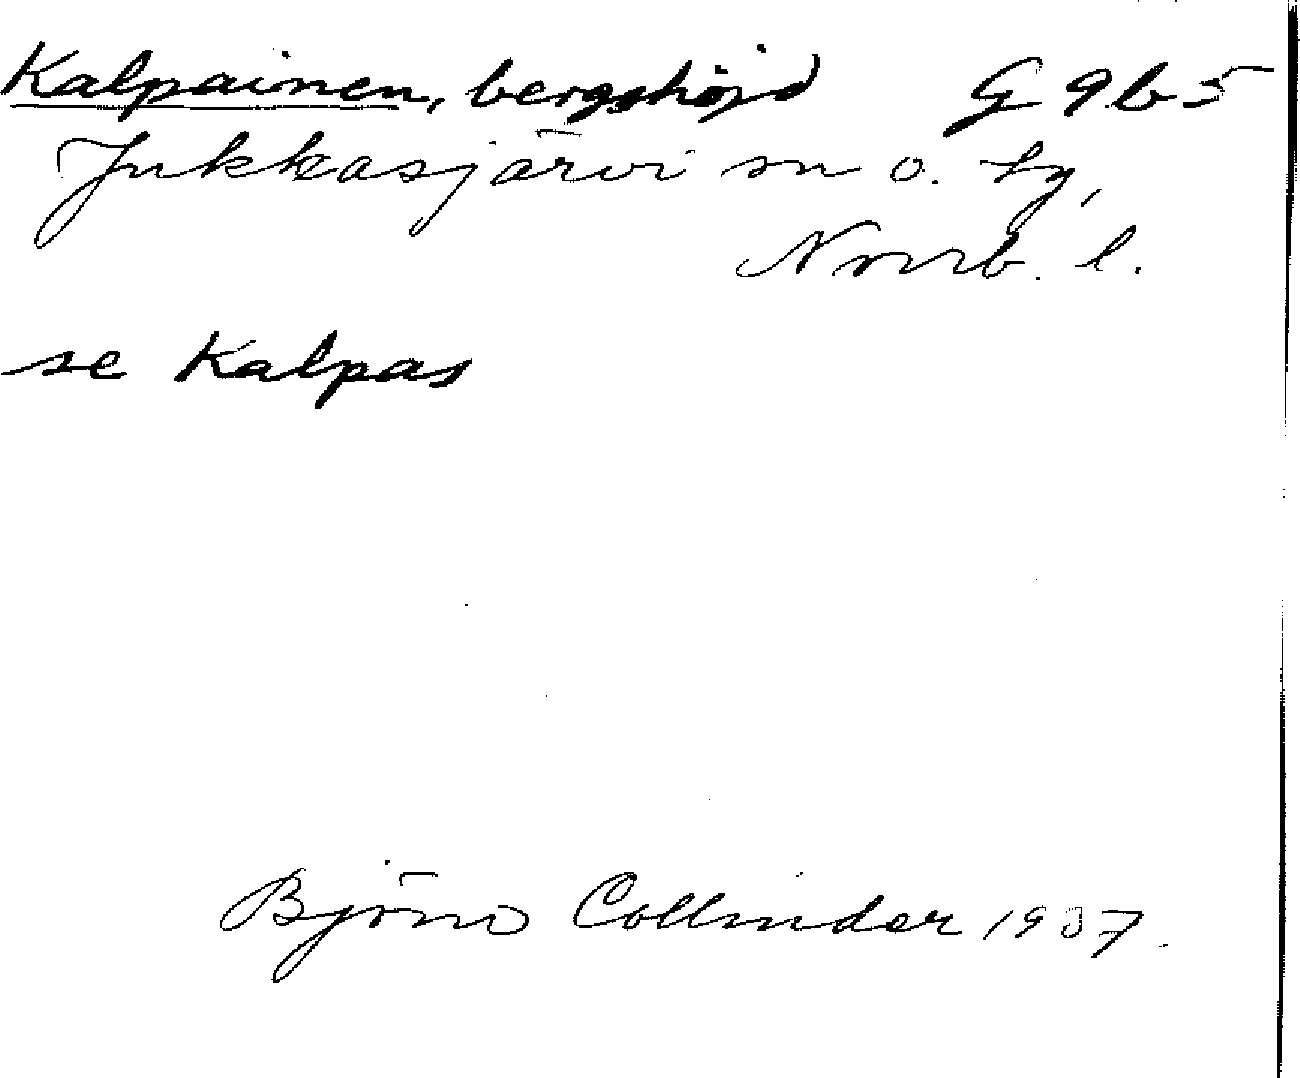 Kalpainen, bergshöjd G 9 b 5
Jukkasjärvi sn o. tg,
Norrb. l.
se Kalpas
Björn Collinder 1937.